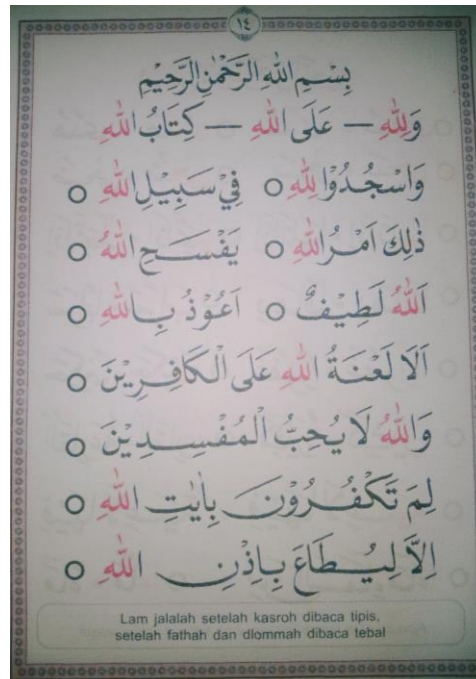 ١٤
بِسْمِ اللهِ الرَّحْمٰنِ الرَّحِيْمِ
وَلِلّٰهِ — عَلَى اللهِ — كِتَابُ اللهِ
وَاسْجُدُوْا لِلّٰهِ ○ فِيْ سَبِيْلِ اللهِ ○
ذٰلِكَ اَمْرُ اللهِ ○ يَفْسَحِ اللهُ ○
اَللهُ لَطِيْفٌ ○ اَعُوْذُ بِاللهِ ○
اَلَا لَعْنَةُ اللهِ عَلَى الْكَافِرِيْنَ ○
وَاللهُ لَا يُحِبُّ الْمُفْسِدِيْنَ ○
لِمَ تَكْفُرُوْنَ بِاٰيٰتِ اللهِ ○
اِلَّا لِيُطَاعَ بِاِذْنِ اللهِ ○
Lam jalalah setelah kasroh dibaca tipis,
setelah fathah dan dlommah dibaca tebal